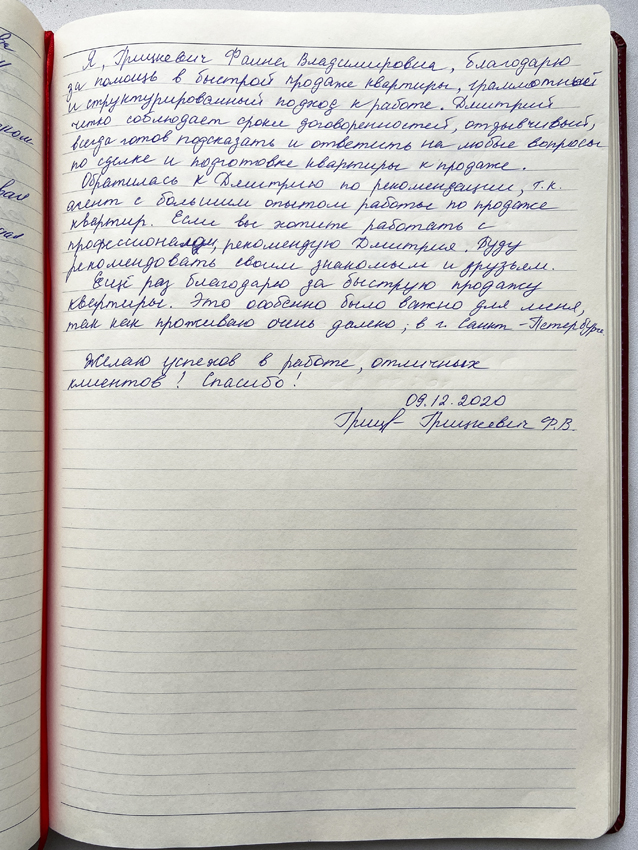 Я, Грицкевич Фаина Владимировна, благодарю
за помощь в быстрой продаже квартиры, грамотный
и структурированный подход к работе. Дмитрий
четко соблюдает сроки договоренностей, отзывчивый,
всегда готов подсказать и ответить на любые вопросы
по сделке и подготовке квартиры к продаже.
Обратилась к Дмитрию по рекомендации, т.к.
агент с большим опытом работы по продаже
квартир. Если вы хотите работать с
профессионалом, рекомендую Дмитрия. Буду
рекомендовать своим знакомым и друзьям.
Ещё раз благодарю за быструю продажу
квартиры. Это особенно было важно для меня,
так как проживаю очень далеко, в г. Санкт-Петербурге.
Желаю успехов в работе, отличных
клиентов! Спасибо!
09.12.2020
Грицкевич Ф.В.